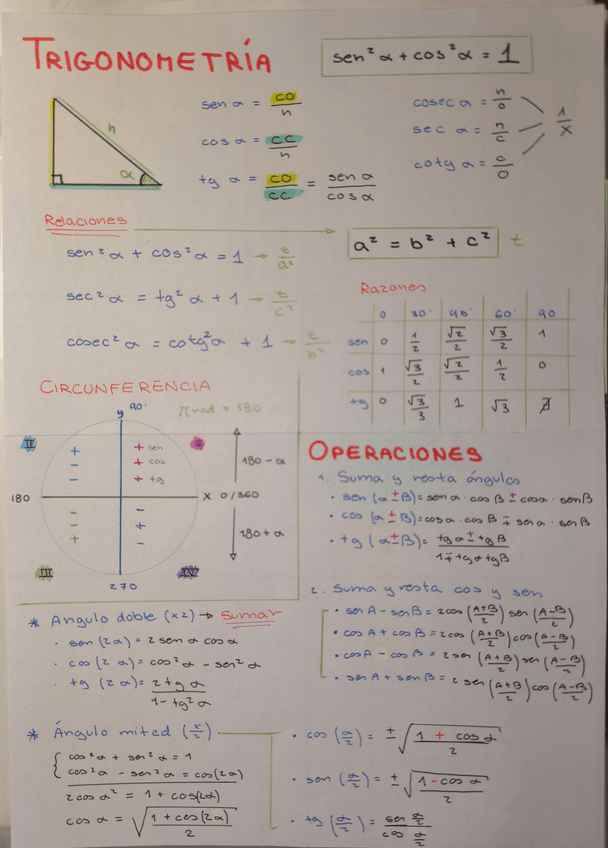 TRIGONOMETRÍA
sen²α + cos²α = 1
h
α
sen α = CO/h
cos α = CC/h
tg α = CO/CC = sen α/cos α
cosec α = h/o
sec α = h/c
cotg α = c/o
1/x
Relaciones
a² = b² + c² t
sen²α + cos²α = 1 → t/a²
sec²α = tg²α + 1 → t/c²
cosec²α = cotg²α + 1 → t/b²
Razones
0 30° 45° 60° 90
sen 0 1/2 √2/2 √3/2 1
cos 1 √3/2 √2/2 1/2 0
tg 0 √3/3 1 √3 ∄
CIRCUNFERENCIA
π rad = 180
y 90°
II
I
+ + sen
- + cos
- + tg
180 X 0/360
180 - α
180 + α
- -
- +
+ -
III
IV
270
OPERACIONES
1. Suma y resta ángulos
· sen (α ± B) = sen α · cos B ± cos α · sen B
· cos (α ± B) = cos α · cos B ∓ sen α · sen B
· tg (α ± B) = tg α ± tg B/1 ∓ tg α tg B
2. Suma y resta cos y sen
· sen A - sen B = 2 cos (A+B/2) sen (A-B/2)
· cos A + cos B = 2 cos (A+B/2) cos (A-B/2)
· cos A - cos B = 2 sen (A+B/2) sen (A-B/2)
· sen A + sen B = 2 sen (A+B/2) cos (A-B/2)
* Angulo doble (x2) → Sumar
· sen (2α) = 2 sen α cos α
· cos (2α) = cos²α - sen²α
· tg (2α) = 2 tg α/1 - tg²α
* Ángulo mitad (x/2)
{ cos²α + sen²α = 1
cos²α - sen²α = cos(2α)
2cos α² = 1 + cos(2α)
cos α = √(1 + cos(2α)/2)
· cos (α/2) = ± √(1 + cos α/2)
· sen (α/2) = ± √(1 - cos α/2)
· tg (α/2) = sen α/2/cos α/2